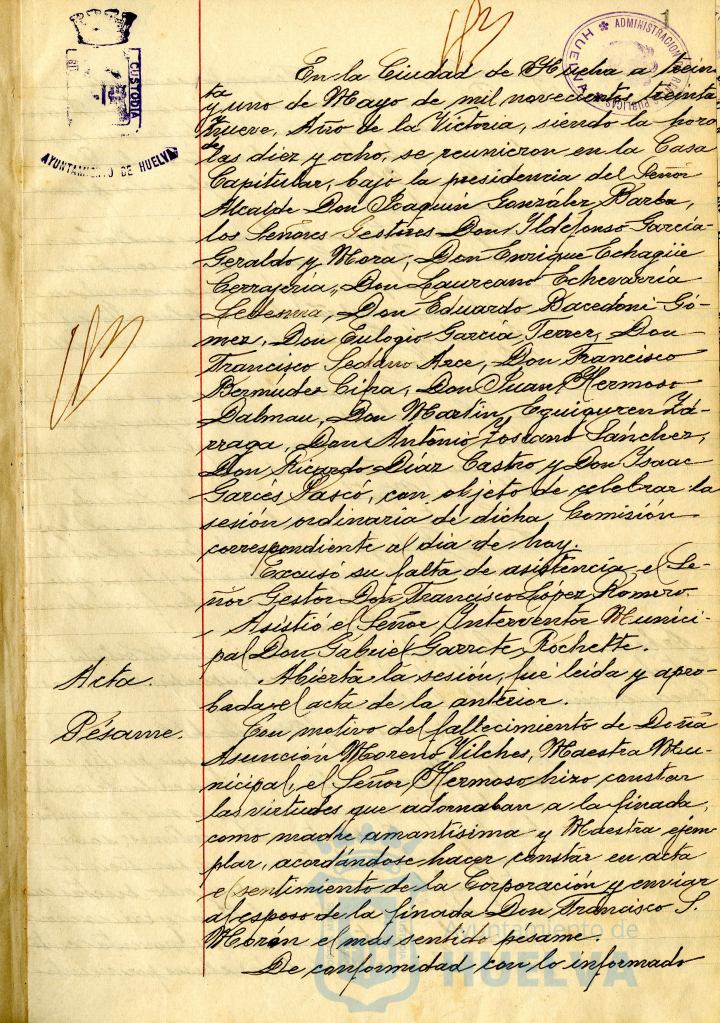 1
ADMINISTRACION
PUBLICAS
HUELVA
CUSTODIA
AYUNTAMIENTO DE HUELVA
En la Ciudad de Huelva a trein
ta
y uno de Mayo de mil novecientos treinta
y nueve, Año de la Victoria, siendo la hora
de
las diez y ocho, se reunieron en la Casa
Capitular, bajo la presidencia del Señor
Alcalde Don Joaquín González Barba,
los Señores Gestores Don Ildefonso García-
Geraldo y Mora, Don Enrique Echagüe
Cerrajería, Don Laureano Echevarría
Ledesma, Don Eduardo Bacedoni Gó-
mez, Don Eulogio García Ferrer, Don
Francisco Sedano Arce, Don Francisco
Bermúdez Cifra, Don Juan Hermoso
Dalmau, Don Martín Eguiguren Yá-
rraga, Don Antonio Toscano Sánchez,
Don Ricardo Díaz Castro y Don Isaac
Garcés Pascó, con objeto de celebrar la
sesión ordinaria de dicha Comisión
correspondiente al dia de hoy.
Excusó su falta de asistencia, el Se-
ñor Gestor Don Francisco López Romero.
Asistió el Señor Interventor Munici-
pal Don Gabriel Garrote Rochette.
Acta.
Abierta la sesión, fué leida y apro-
bada el acta de la anterior.
Pésame.
Con motivo del fallecimiento de Doña
Asunción Moreno Vilches, Maestra Mu-
nicipal, el Señor Hermoso hizo constar
las virtudes que adornaban a la finada,
como madre amantísima y Maestra ejem-
plar, acordándose hacer constar en acta
el sentimiento de la Corporación y enviar
al esposo de la finada Don Francisco S.
Morán el más sentido pésame.
De conformidad con lo informado
Ayuntamiento de
HUELVA